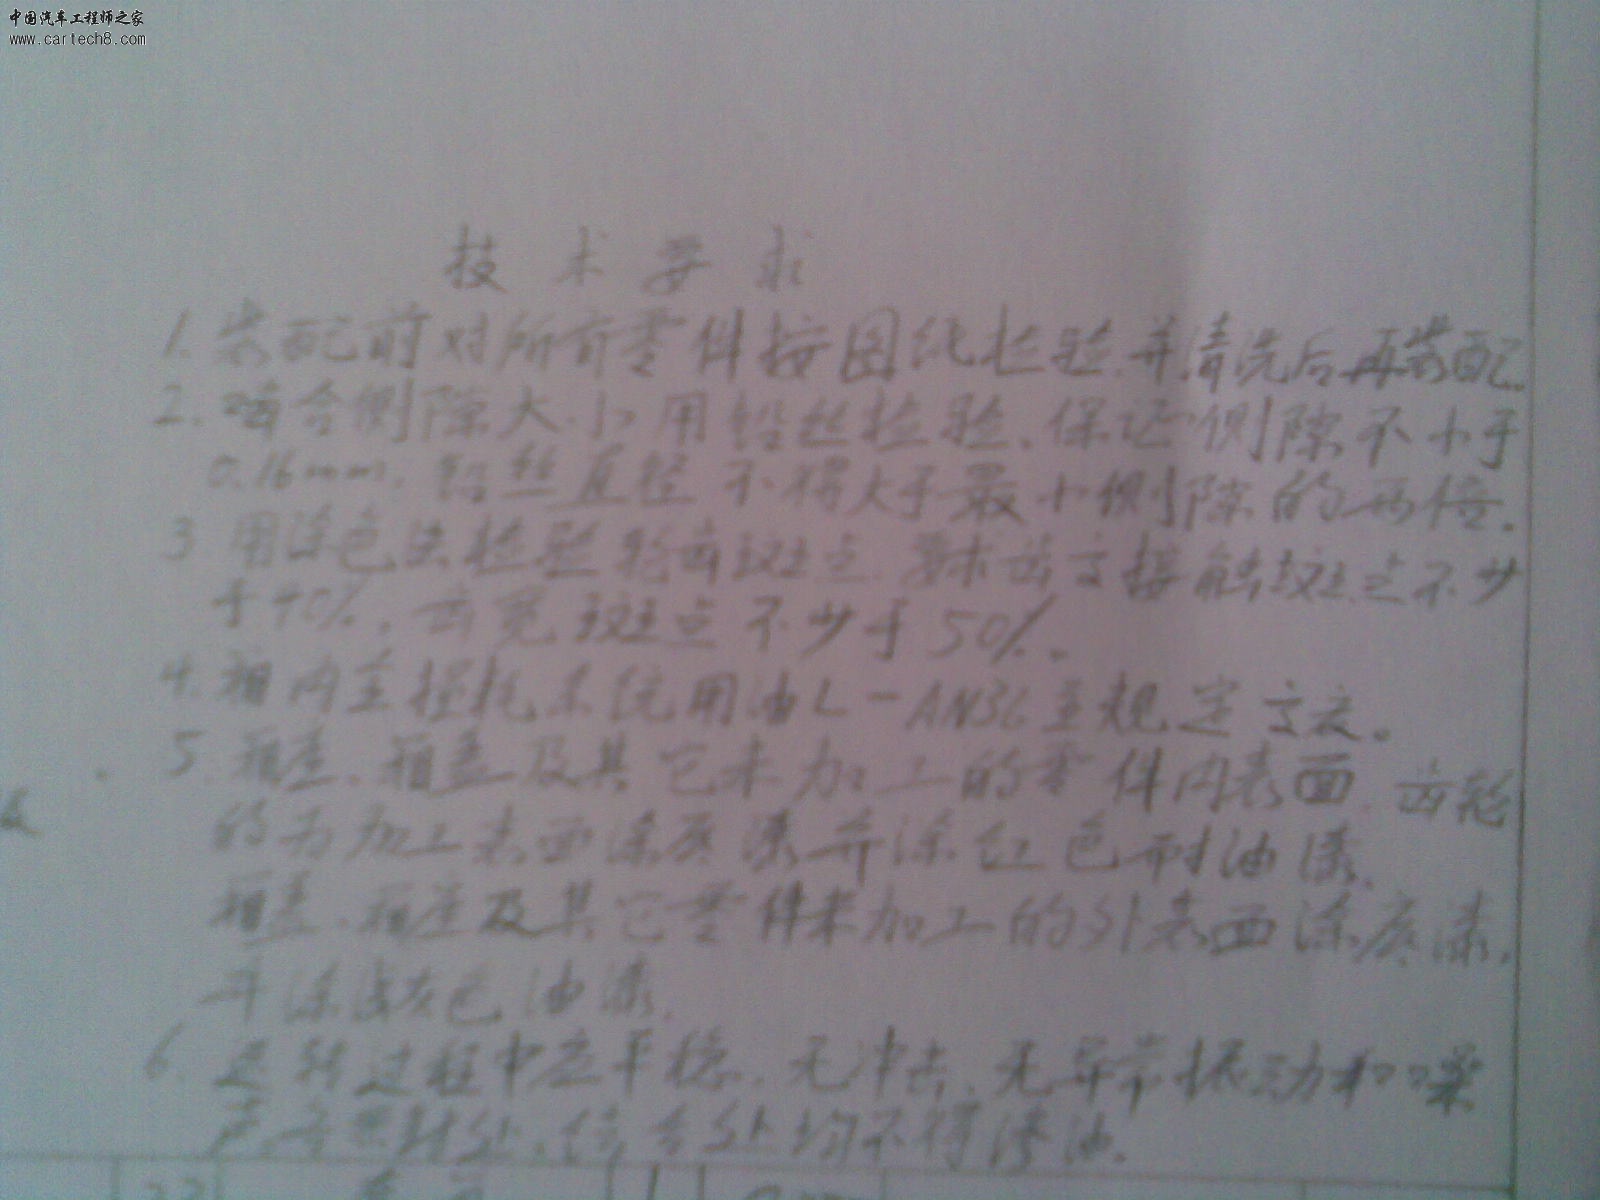 中国汽车工程师之家
www.cartech8.com
技术要求
1.装配前对所有零件按图纸检验,并清洗后再装配
2.啮合侧隙大小用铅丝检验,保证侧隙不小于
0.16mm,铅丝直径不得大于最小侧隙的两倍.
3 用涂色法检验轮齿斑点,要求齿高接触斑点不少
于40%,齿宽斑点不少于50%。
4.箱内全损耗系统用油L-AN36至规定高度。
5.箱盖,箱盖及其它未加工的零件内表面,齿轮
的为加工表面涂底漆并涂红色耐油漆,
箱盖,箱座及其它零件未加工的外表面涂底漆,
并涂浅灰色油漆.
6.运转过程中应平稳,无冲击,无异常振动和噪
声,各密封处,结合处均不得渗油.